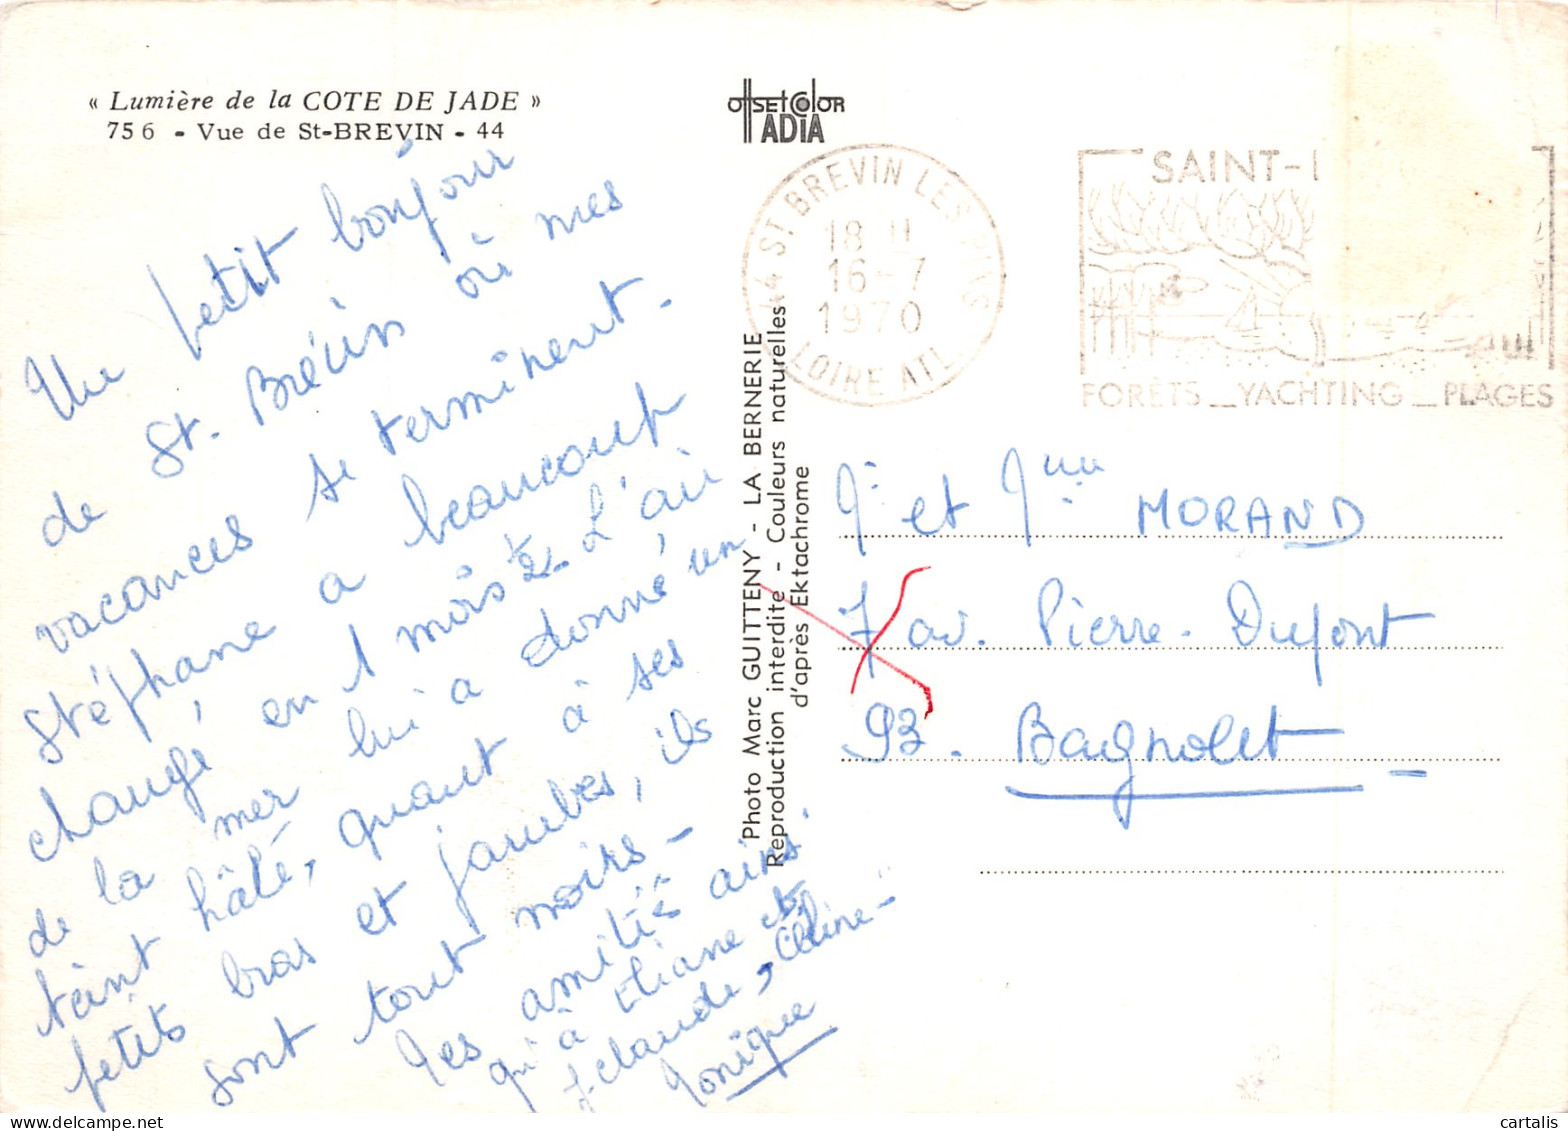 « Lumière de la COTE DE JADE »
756 - Vue de St-BREVIN - 44
offset color
ADIA
44 ST BREVIN LES PINS
18 H
16-7
1970
LOIRE ATL.
SAINT-
FORÊTS _ YACHTING _ PLAGES
Un petit bonjour
de St. Brévin où mes
vacances se terminent.
Stéphane a beaucoup
changé en 1 mois 1/2. L'air
de la mer lui a donné un
teint hâlé, quant à ses
petits bras et jambes, ils
sont tout noirs -
Mes amitiés ainsi
qu'à Eliane et
J. Claude, Céline -
Monique
Photo Marc GUITTENY - LA BERNERIE
Reproduction interdite - Couleurs naturelles
d'après Ektachrome
Mr et Mme MORAND
7 av. Pierre-Dupont
93. Bagnolet -
cartalis